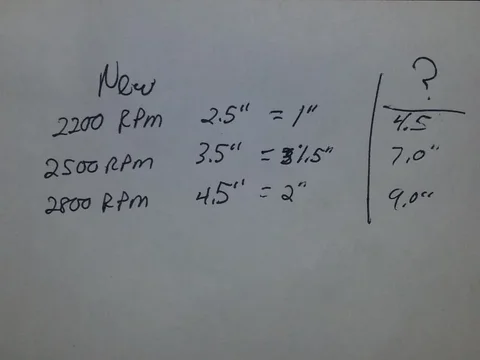 New ?
2200 RPM 2.5" = 1" 4.5
2500 RPM 3.5" = 1.5" 7.0"
2800 RPM 4.5" = 2" 9.0"